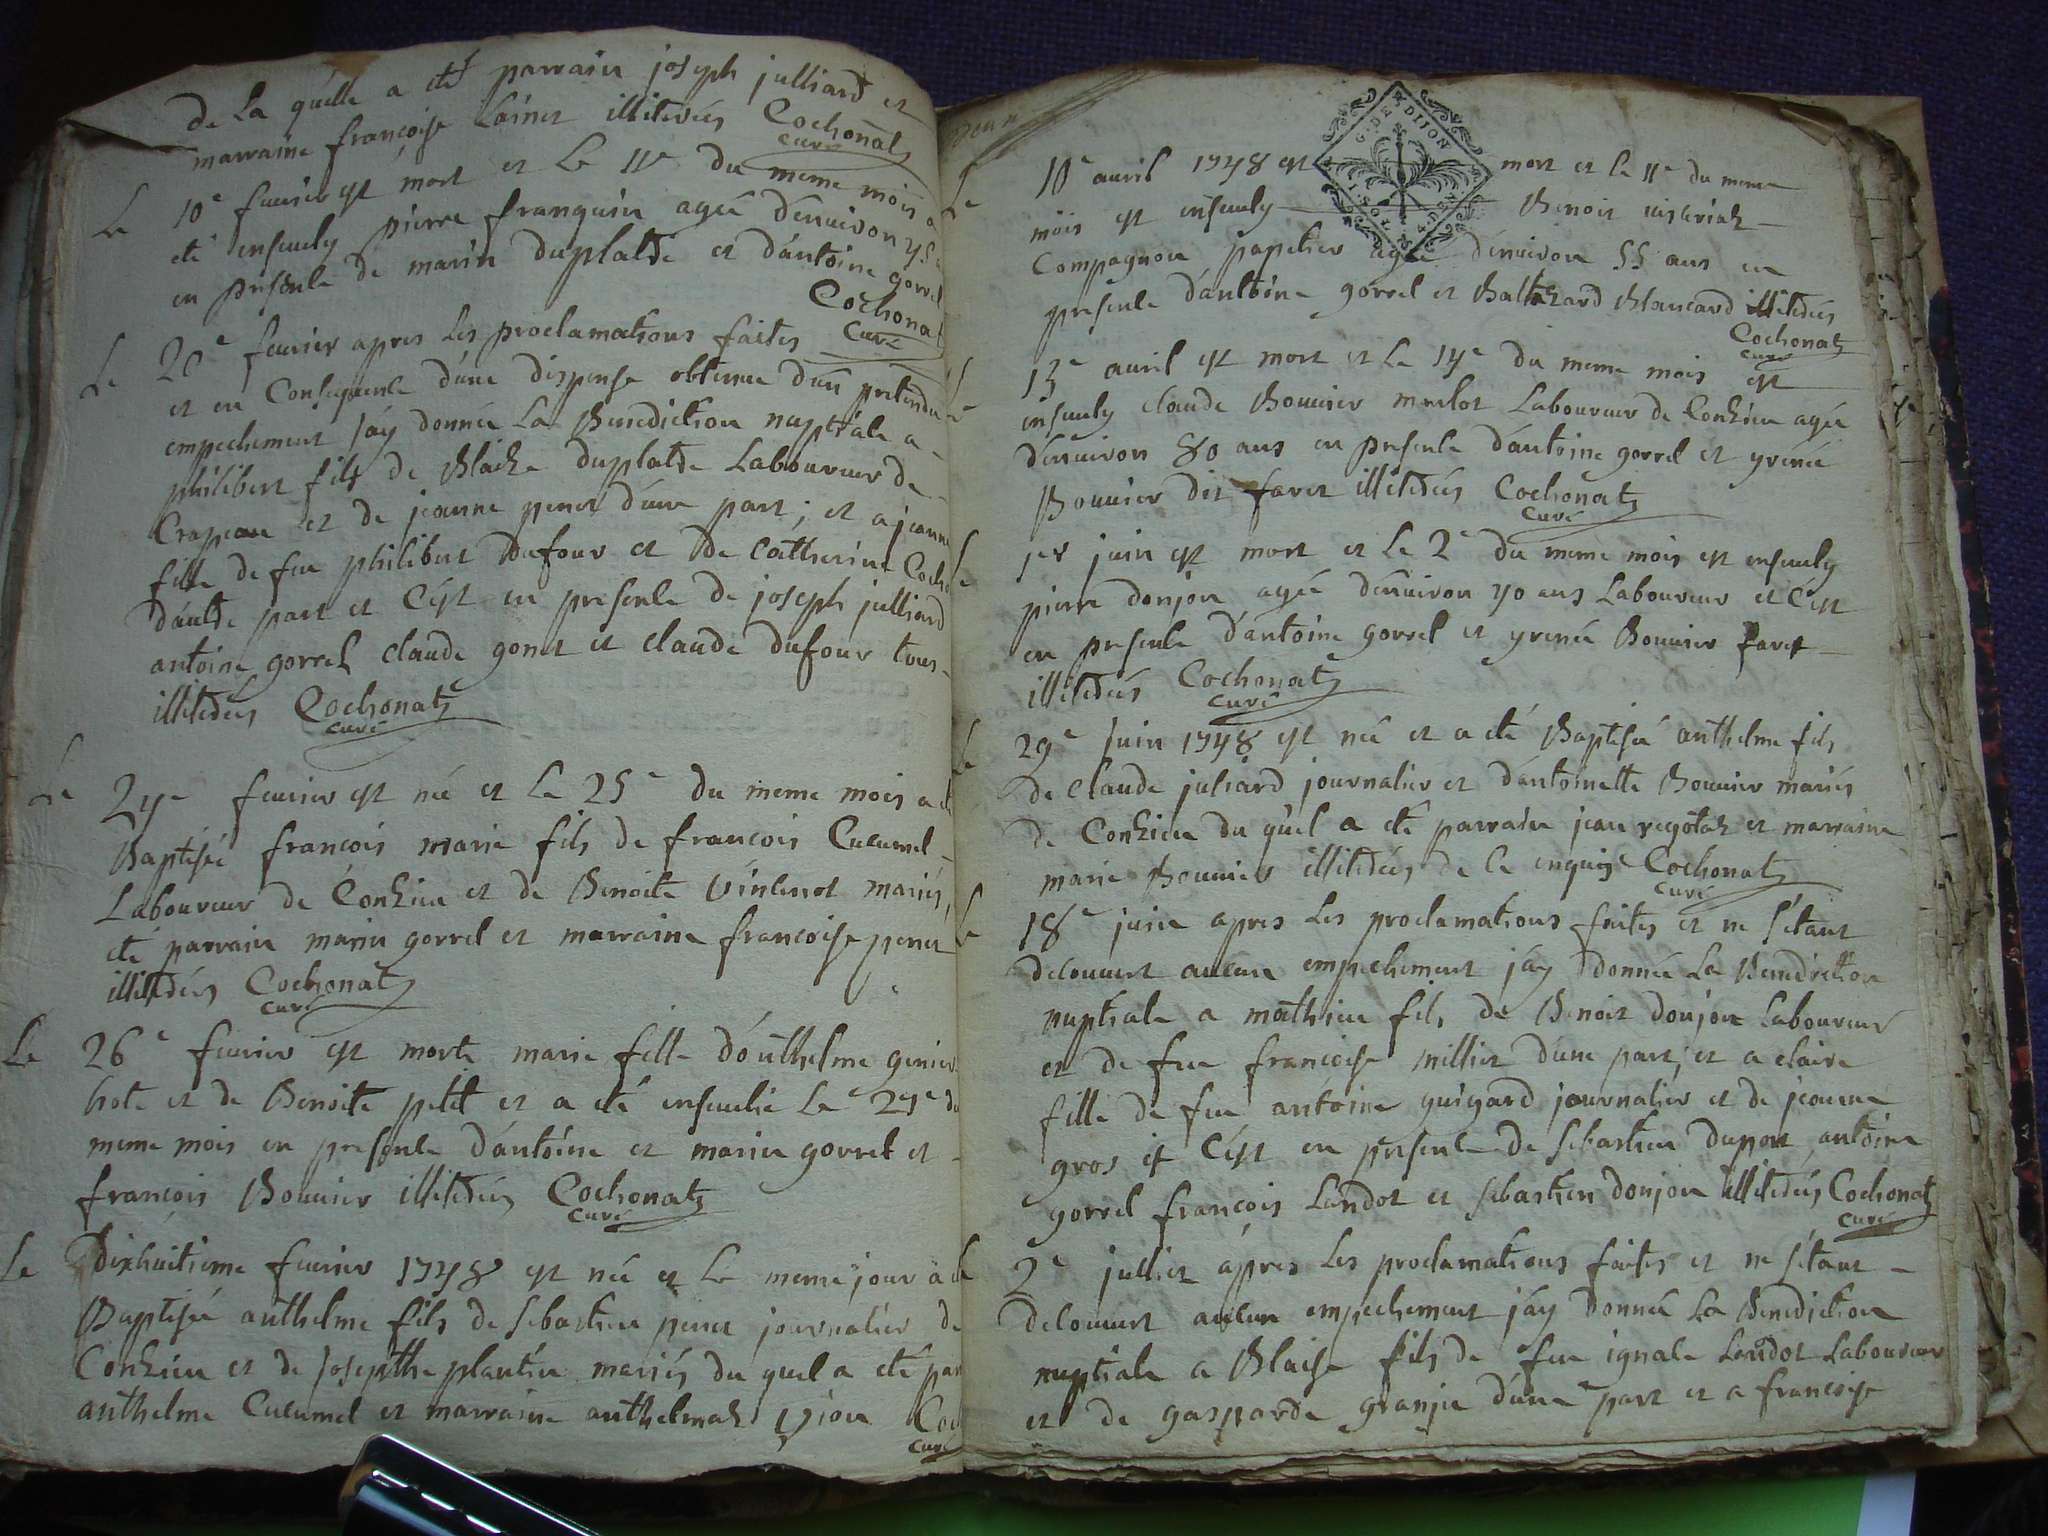 de La quelle a eté parrain joseph julliard et
marraine françoise Lainet illiterés Cochonat
curé
Le 10e feurier est mort et Le 11e du meme mois a
eté enseuely pierre franquin agée d'enuiron 45
en presence de marin duplatre et d'antoine gorrel
Cochonat
curé
Le 20e feurier apres Les proclamations faites
et en Consequence d'une dispense obtenue d'un pretendu
empechement j'ay donnée La Benediction nuptiale a
philibert fils de Blaize duplatre Laboureur de
Crapeou et de jeanne penet d'une part; et a jeanne
fille de feu philibert Dufour et de Catherine Coch
d'autre part et C'est en presence de joseph julliard
antoine gorrel claude gonet et claude dufour tous
illiterés Cochonat
curé
Le 24e feurier est né et Le 25e du meme mois a eté
Baptisée francois marie fils de francois Cucumel
Laboureur de Conzieu et de Benoite Vincenot mariés,
eté parrain marin gorrel et marraine francoise penet
illiterés Cochonat
curé
Le 26e feurier est morte marie fille d'anthelme genier
hote et de Benoite petit et a eté enseuelie Le 27e du
meme mois en presence d'antoine et marin gorrel et
francois Bouuier illiterés Cochonat
curé
Le Dixhuitieme feurier 1748 est né et Le meme jour a eté
Baptisée anthelme fils de sebastien penet journalier de
Conzieu et de Josepthe plantin mariés du quel a eté par
anthelme Cucumel et marraine anthelmaz Coc
curé
Le 10e auril 1748 est mort et le 11e du meme
G. DE DIJON
mois est enseuely Benoit
Compagnon papetier agée d'enuiron 55 ans en
presence d'antoine gorrel et Baltazard Blancard illiterés
Cochonat
curé
Le 13e auril est mort et Le 14e du meme mois est
enseuely claude Bouuier merlot Laboureur de Conzieu agée
d'enuiron 80 ans en presence d'antoine gorrel et yrenée
Bouuier dit faret illiterés Cochonat
curé
Le 1er juin est mort et Le 2e du meme mois est enseuely
pierre donjon agée d'enuiron 40 ans Laboureur et C'est
en presence d'antoine gorrel et yrenée Bouuier faret
illiterés Cochonat
curé
Le 29e juin 1748 est né et a eté Baptisée anthelme fils
de Claude juliard journalier et d'antoinette Bouuier mariés
de Conzieu du quel a eté parrain jean regotaz et marraine
marie Bouuier illiterés de ce enquis Cochonat
curé
Le 18e juin apres Les proclamations faites et ne s'étant
decouuert aucun empechement j'ay donnée La Benediction
nuptiale a mathieu fils de Benoit donjon Laboureur
et de feu francoise millier d'une part; et a claire
fille de feu antoine guigard journalier et de jeanne
gros et C'est en presence de sebastien dupont antoine
gorrel francois Landot et sebastien donjon illiterés Cochonat
curé
Le 2e julliet apres Les proclamations faites et ne s'étant
decouuert aucun empechement j'ay donnée La Benediction
nuptiale a Blaise fils de feu ignace Landot Laboureur
et de gasparde granjie d'une part et a francoise